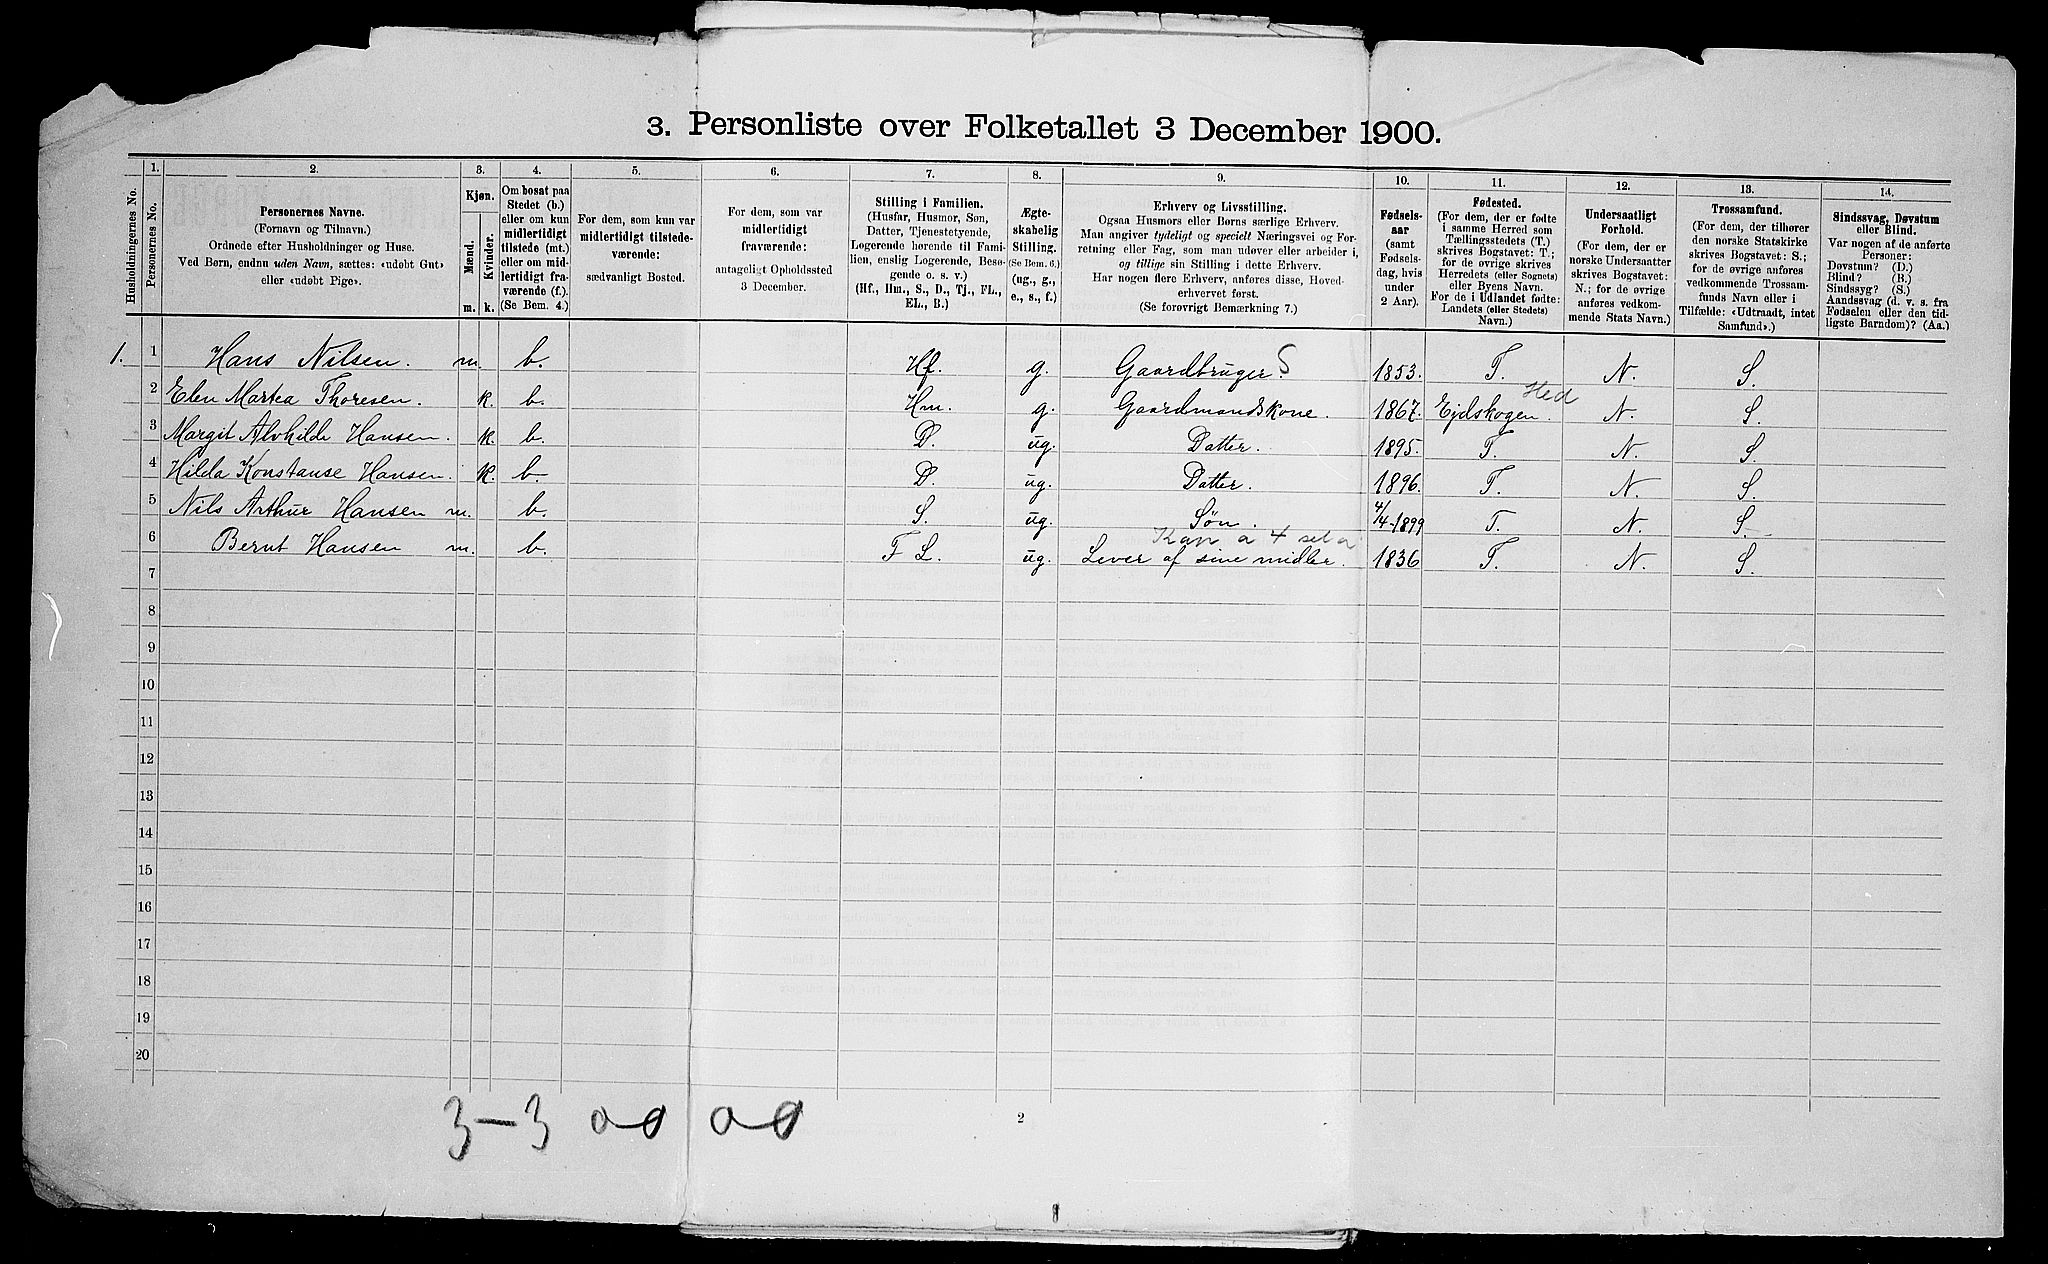 3. Personliste over Folketallet 3 December 1900.
Husholdningernes No.
1.
Personernes No.
2.
Personernes Navne.
(Fornavn og Tilnavn.)
Ordnede efter Husholdninger og Huse.
Ved Børn, endnu uden Navn, sættes: «udøbt Gut»
eller «udøbt Pige».
3.
Kjøn.
Mænd.
Kvinder.
m. k.
4.
Om bosat paa
Stedet (b.)
eller om kun
midlertidigt
tilstede (mt.)
eller om mid-
lertidigt fra-
værende (f.).
(Se Bem. 4.)
5.
For dem, som kun var
midlertidigt tilstede-
værende:
sædvanligt Bosted.
6.
For dem, som var
midlertidigt
fraværende:
antageligt Opholdssted
3 December.
7.
Stilling i Familien.
(Husfar, Husmor, Søn,
Datter, Tjenestetyende,
Logerende hørende til Fami-
lien, enslig Logerende, Besø-
gende o. s. v.)
(Hf., Hm., S., D., Tj., FL.,
EL., B.)
8.
Ægte-
skabelig
Stilling.
(Se Bem. 6.)
(ug., g.,
e., s., f.)
9.
Erhverv og Livsstilling.
Ogsaa Husmors eller Børns særlige Erhverv.
Man angiver tydeligt og specielt Næringsvei og For-
retning eller Fag, som man udøver eller arbeider i,
og tillige sin Stilling i dette Erhverv.
Har nogen flere Erhverv, anføres disse, Hoved-
erhvervet først.
(Se forøvrigt Bemærkning 7.)
10.
Fødsels-
aar
(samt
Fødsels-
dag, hvis
under
2 Aar).
11.
Fødested.
(For dem, der er fødte
i samme Herred som
Tællingsstedets (T.)
skrives Bogstavet: T.;
for de øvrige skrives
Herredets (eller Sognets)
eller Byens Navn.
For de i Udlandet fødte:
Landets (eller Stedets)
Navn.)
12.
Undersaatligt
Forhold.
(For dem, der er
norske Undersaatter
skrives Bogstavet:
N.; for de øvrige
anføres vedkom-
mende Stats Navn.)
13.
Trossamfund.
(For dem, der tilhører
den norske Statskirke
skrives Bogstavet: S.;
for de øvrige anføres
vedkommende Trossam-
funds Navn eller i
Tilfælde: «Udtraadt, intet
Samfund».)
14.
Sindssvag, Døvstum
eller Blind.
Var nogen af de anførte
Personer:
Døvstum? (D.)
Blind? (B.)
Sindssyg? (S.)
Aandssvag (d. v. s. fra
Fødselen eller den tid-
ligste Barndom)? (Aa.)
1. 1 Hans Nilsen. m. b. Hf. g. Gaardbruger. S 1853. T. N. S.
2 Elen Martea Thoresen. k. b. Hm. g. Gaardmandskone. 1867. Ejdskogen. Hed N. S.
3 Margit Alvhilde Hansen. k. b. D. ug. Datter. 1895. T. N. S.
4 Hilda Konstanse Hansen. k. b. D. ug. Datter. 1896. T. N. S.
5 Nils Arthur Hansen m. b. S. ug. Søn. 4/4-1899 T. N. S.
6 Bernt Hansen m. b. F L. ug. Lever af sine midler. 1836 T. N. S.
7
8
9
10
11
12
13
14
15
16
17
18
19
20
3-3 00 00
2